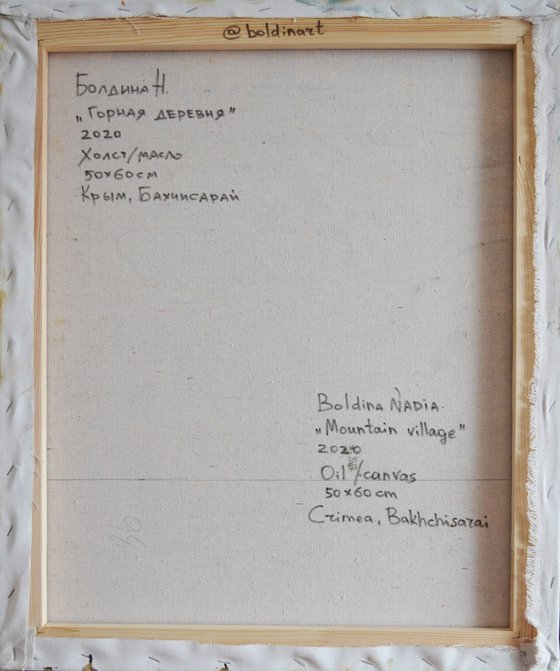 @boldinart
Болдина Н.
„Горная деревня"
2020
Холст/масло
50х60см
Крым, Бахчисарай
Boldina Nadia.
„Mountain village"
2020
Oil/canvas
50x60cm
Crimea, Bakhchisarai
36